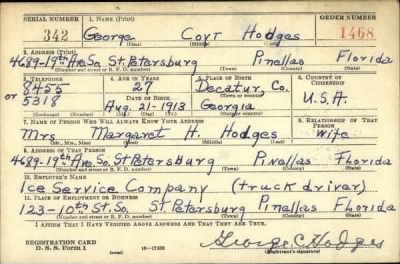 SERIAL NUMBER 1. NAME (Print) ORDER NUMBER
342 George Coyt Hodges 1468
(First) (Middle) (Last)
2. ADDRESS (Print)
4689-19th Ave So. St Petersburg Pinellas Florida
(Number and street or R. F. D. number) (Town) (County) (State)
3. TELEPHONE 4. AGE IN YEARS 5. PLACE OF BIRTH 6. COUNTRY OF CITIZENSHIP
8455 27 Decatur, Co.
DATE OF BIRTH (Town or county)
or 5318 Aug. 21-1913 Georgia U.S.A.
(Mo.) (Day) (Yr.) (State or country)
7. NAME OF PERSON WHO WILL ALWAYS KNOW YOUR ADDRESS 8. RELATIONSHIP OF THAT PERSON
Mrs Margaret H. Hodges Wife
(Mr., Mrs., Miss) (First) (Middle) (Last)
9. ADDRESS OF THAT PERSON
4689-19th Ave So. St Petersburg Pinellas Florida
(Number and street or R. F. D. number) (Town) (County) (State)
10. EMPLOYER'S NAME
Ice Service Company (truck driver)
11. PLACE OF EMPLOYMENT OR BUSINESS
123-10th St. So. St Petersburg Pinellas Florida
(Number and street or R. F. D. number) (Town) (County) (State)
I AFFIRM THAT I HAVE VERIFIED ABOVE ANSWERS AND THAT THEY ARE TRUE.
REGISTRATION CARD
D. S. S. Form 1 (over) George C Hodges